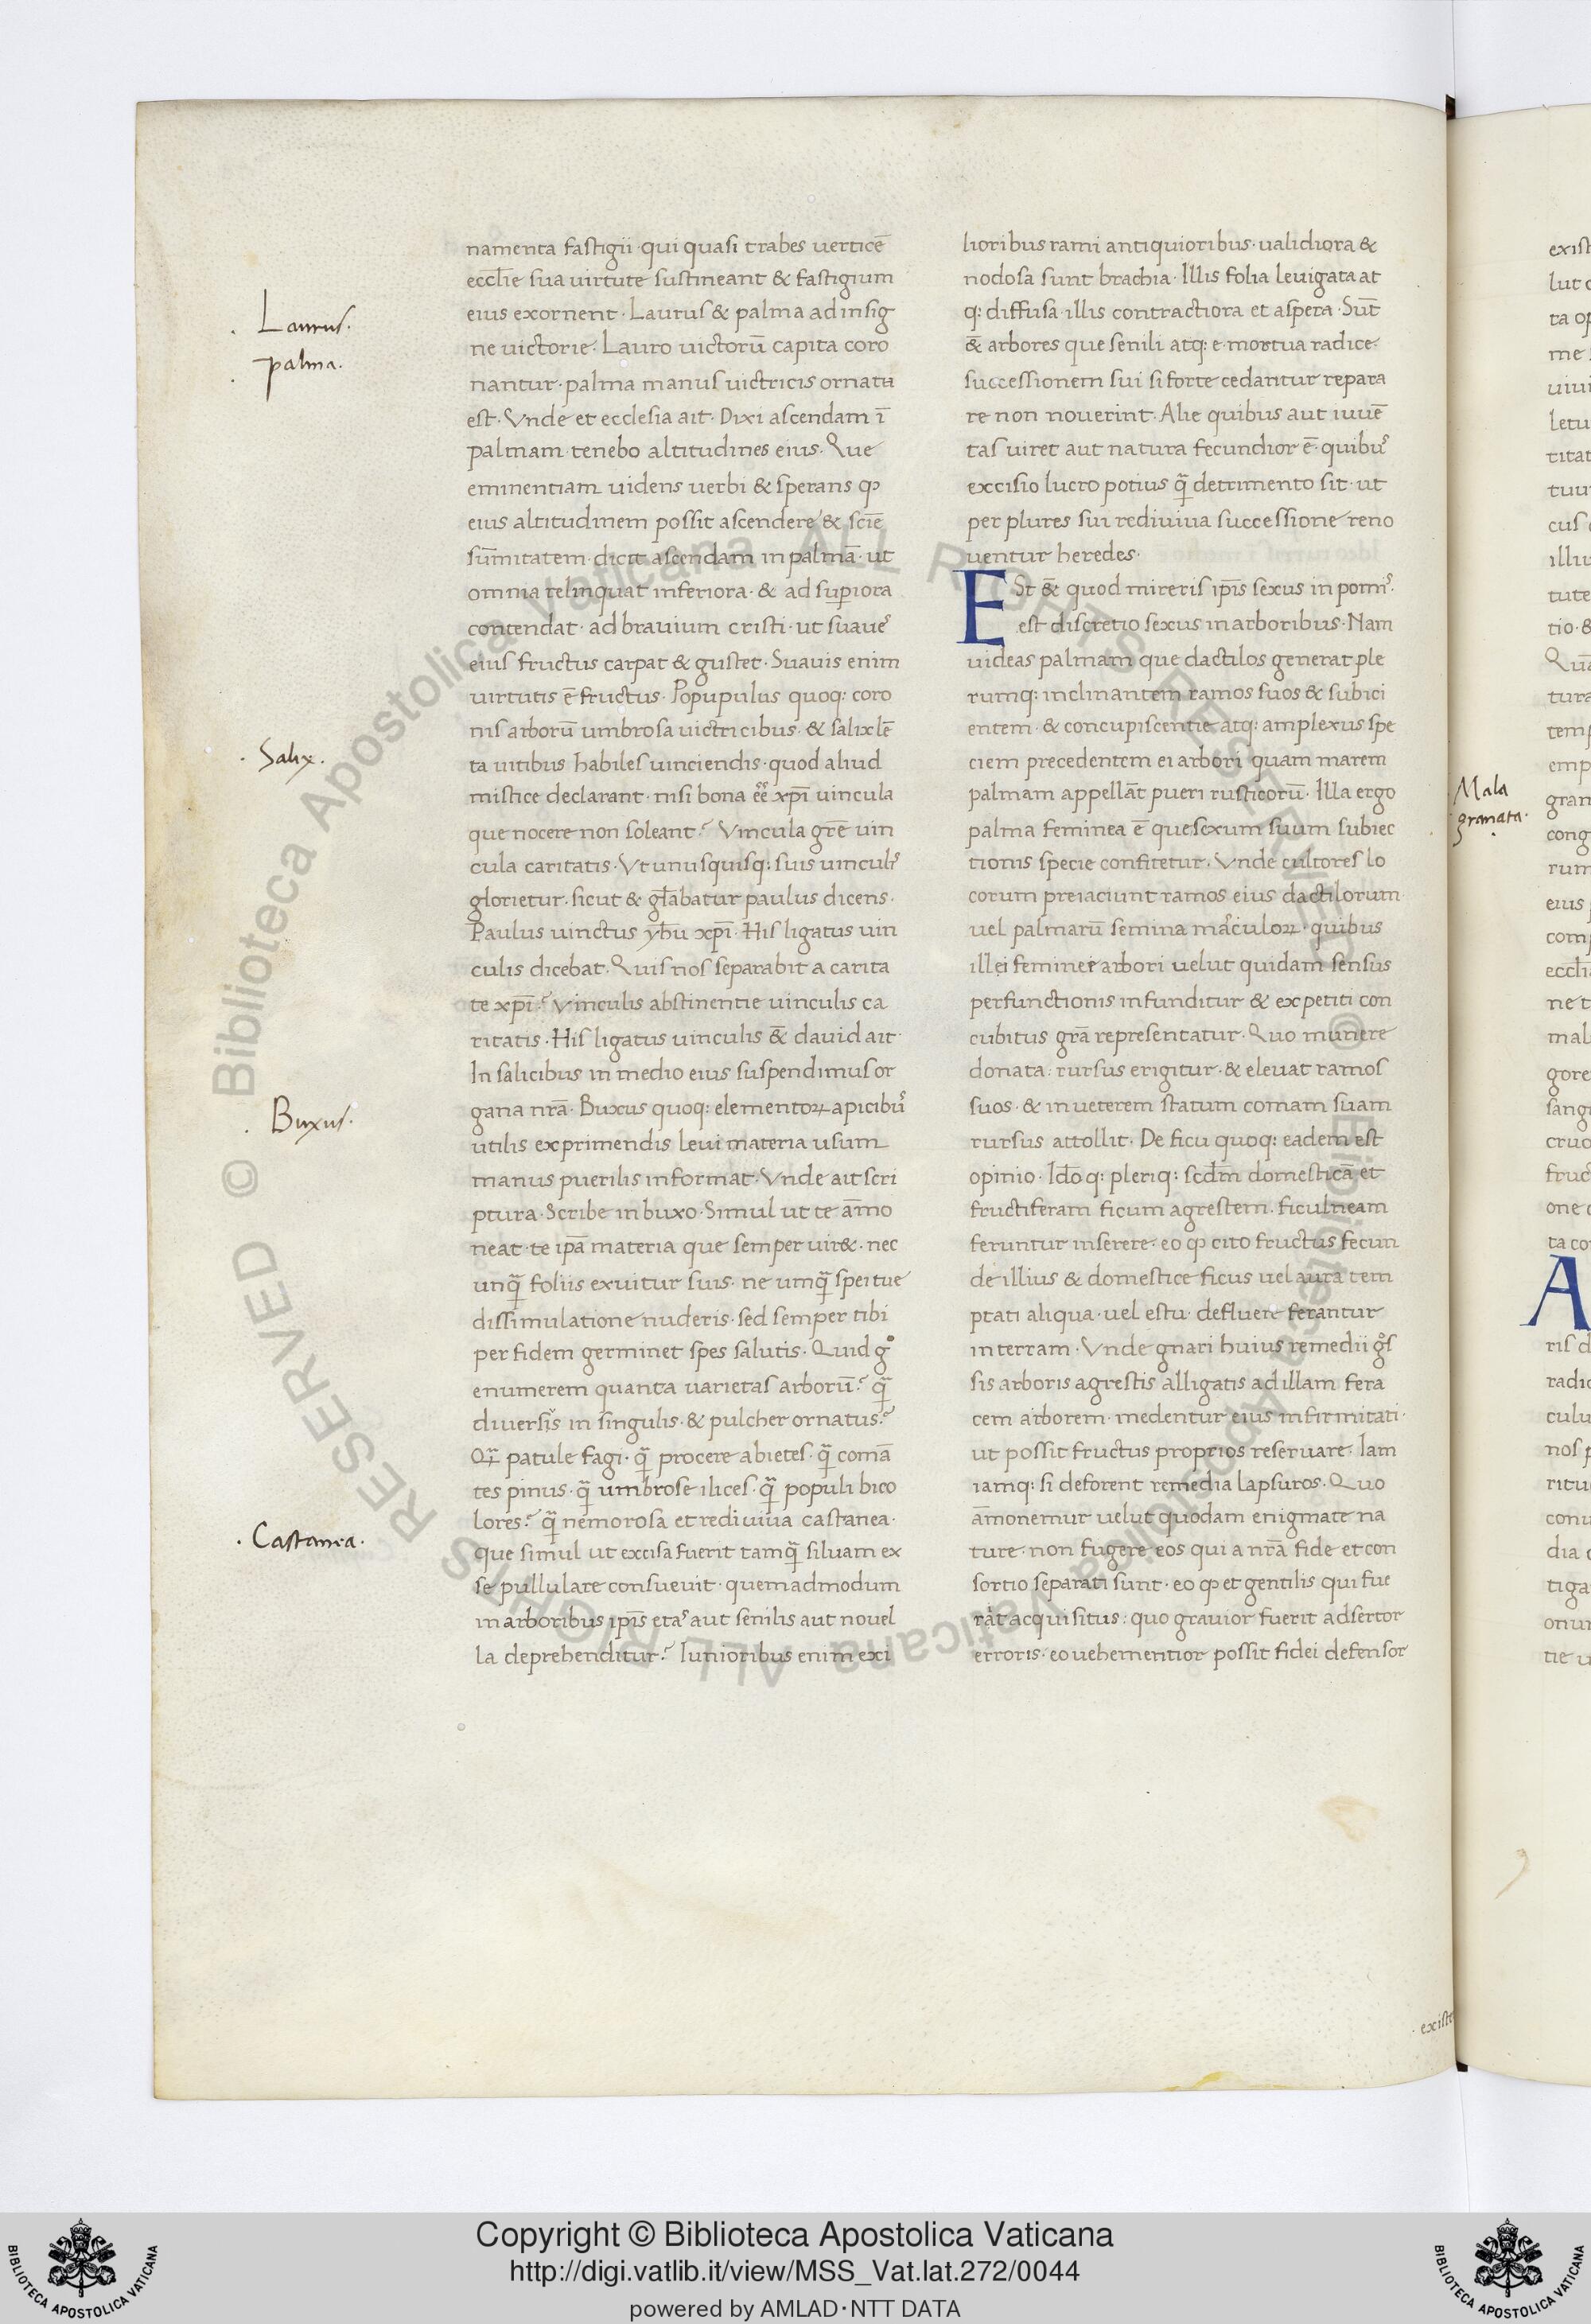 Laurus.
palma.
Salix.
Buxus.
Castanea.
namenta fastigii· qui quasi trabes uerticē
eccl̄ie sua uirtute sustineant & fastigium
eius exornent· Laurus & palma ad insig
ne uictorie· Lauro uictorū capita coro
nantur· palma manus uictricis ornata
est· Vnde et ecclesia ait· Dixi ascendam ī
palmam· tenebo altitudines eius· Que
eminentiam uidens uerbi & sperans ꝙ
eius altitudinem possit ascendere & sciē
sūmitatem· dicit ascendam in palmā· ut
omnia relinquat inferiora· & ad supiora
contendat· ad brauium cristi· ut suaueˢ
eius fructus carpat & gustet· Suauis enim
uirtutis ē fructus· Popupulus quoq: coro
nis arborū umbrosa uictricibus· & salix lē
ta uitibus habiles uinciendis· quod aliud
mistice declarant· nisi bona eē̄ xp̄i uincula
que nocere non soleant? Vincula grē uin
cula caritatis· Vt unusquisq: suis uinculˢ
glorietur· sicut & gl̄abatur paulus dicens·
Paulus uinctus yh̄u xp̄i· His ligatus uin
culis dicebat· Quis nos separabit a carita
te xp̄i? Vinculis abstinentie uinculis ca
ritatis· His ligatus uinculis &̄ dauid ait·
In salicibus in medio eius suspendimus or
gana nr̄a· Buxus quoq: elementoꝝ apicibuˢ
utilis exprimendis leui materia usum
manus puerilis informat· Vnde ait scri
ptura· Scribe in buxo· Simul ut te āmo
neat· te ip̄a materia que semper uir&· nec
unq̄ foliis exuitur suis· ne umq̄ spei tue
dissimulatione nuderis· sed semper tibi
per fidem germinet spes salutis· Quid gͦ
enumerem quanta uarietas arborū? q̄
diuersˢ in singulis· & pulcher ornatus?
Q̄ patule fagi· q̄ procere abietes· q̄ comā
tes pinus· q̄ umbrose ilices· q̄ populi bico
lores? q̄ nemorosa et rediuiua castanea·
que simul ut excisa fuerit tamq̄ siluam ex
se pullulare consueuit· quemadmodum
in arboribus ip̄is etaˢ aut senilis aut nouel
la deprehenditur? Iunioribus enim exi
lioribus rami antiquioribus· ualidiora &
nodosa sunt brachia· Illis folia leuigata at
q: diffusa· illis contractiora et aspera· Sūt
&̄ arbores que senili atq: emortua radice
successionem sui si forte cedantur repara
re non nouerint· Alie quibus aut iuuē
tas uiret aut natura fecundior ē· quibuˢ
excisio lucro potius q̄ detrimento sit· ut
per plures sui rediuiua successione reno
uentur heredes·
Est &̄ quod mireris ip̄is sexus in pomiˢ·
est discretio sexus in arboribus· Nam
uideas palmam que dactilos generat ple
rumq: inclinantem ramos suos & subici
entem· & concupiscentie atq: amplexus spe
ciem precedentem ei arbori quam marem
palmam appellāt pueri rusticorū· Illa ergo
palma feminea ē que sexum suum subiec
tionis specie confitetur· Vnde cultores lo
corum preiaciunt ramos eius dactilorum
uel palmarū semina masculoꝝ· quibus
illei feminei arbori uelut quidam sensus
perfunctionis infunditur & expetiti con
cubitus grā representatur· Quo munere
donata: rursus erigitur· & eleuat ramos
suos· & in ueterem statum comam suam
rursus attollit· De ficu quoq: eadem est
opinio· Id̄o q: pleriq: scd̄m domesticā et
fructiferam ficum agrestem· ficulneam
feruntur inserere· eo ꝙ cito fructus fecun
de illius & domestice ficus uel aura tem
ptati aliqua· uel estu· defluere ferantur
in terram· Vnde gnari huius remedii gͦs
sis arboris agrestis alligatis ad illam fera
cem arborem· medentur eius infirmitati·
ut possit fructus proprios reseruare· Iam
iamq: si deforent remedia lapsuros· Quo
āmonemur uelut quodam enigmate na
ture· non fugere eos qui a nr̄a fide et con
sortio separati sunt· eo ꝙ et gentilis qui fue
rat acquisitus: quo grauior fuerit adsertor
erroris· eo uehementior possit fidei defensor
· existe
Mala
granata·
A
Copyright © Biblioteca Apostolica Vaticana
http://digi.vatlib.it/view/MSS_Vat.lat.272/0044
powered by AMLAD·NTT DATA
BIBLIOTECA APOSTOLICA VATICANA
BIBLIOTECA APOSTOLICA VATICANA
© Biblioteca Apostolica Vaticana ALL RIGHTS RESERVED © Biblioteca Apostolica Vaticana ALL RIGHTS RESERVED